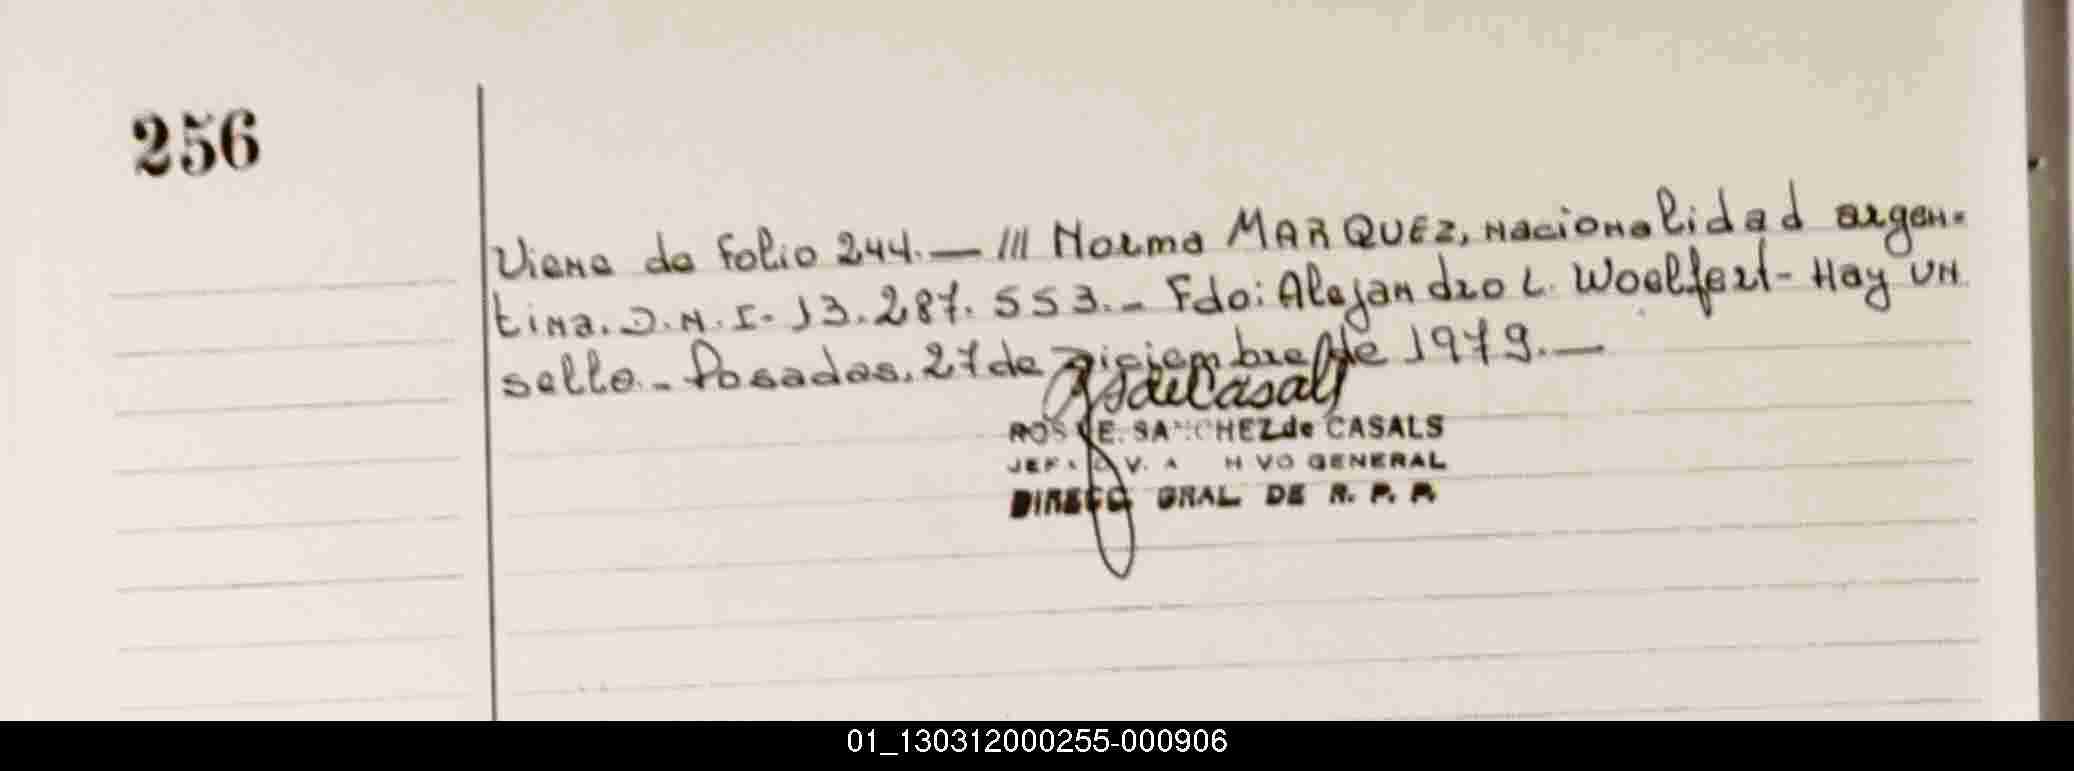 256
Viene de Folio 244.— /// Norma MARQUEZ, nacionalidad argen=
tina. D.N.I. 13.287.553.- Fdo: Alejandro L. Woelfert - Hay un
sello.- Posadas, 27 de Diciembre de 1979.—
E. SANCHEZ de CASALS
GENERAL
GRAL DE R. P. P.
01_130312000255-000906